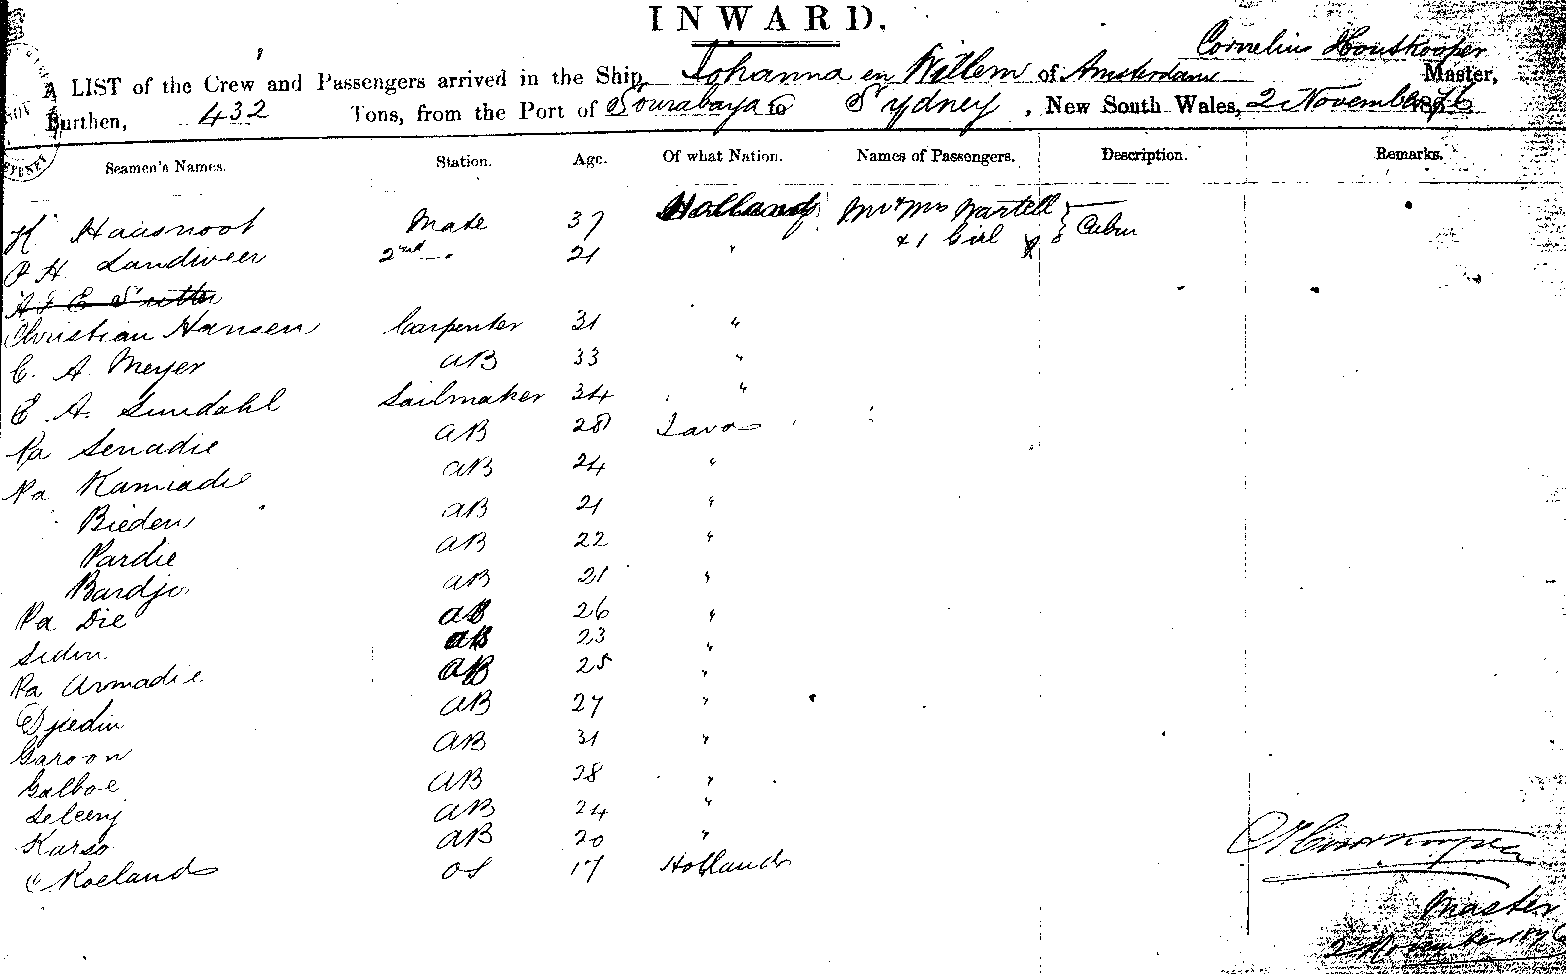 INWARD.
Cornelius Houtkooper
A LIST of the Crew and Passengers arrived in the Ship Johanna en Willem of Amsterdam Master,
Burthen, 432 Tons, from the Port of Sourabaya to Sydney, New South Wales, 2 November 1876
Seamen's Names. Station. Age. Of what Nation. Names of Passengers. Description. Remarks.
K Haasnoot Mate 37 Holland Mr & Mrs Martell
P H Landweer 2nd " 21 " & 1 Girl Cabin
Christian Hansen Carpenter 31 "
C. A. Meyer AB 33 "
E A. Sundahl Sailmaker 34 "
Pa Senadie AB 28 Java
Pa Kamiadie AB 24 "
Bieden AB 21 "
Pardie AB 22 "
Bardjo AB 21 "
Pa Die AB 26 "
Sidin AB 23 "
Pa Armadie AB 25 "
Djiedin AB 27 "
Garoon AB 31 "
Galboe AB 28 "
AB 24 "
Karso AB 20 "
Roelands OS 17 Holland
Master
2 November 1876